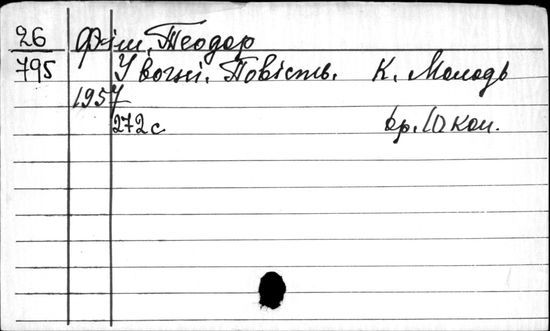 26 Фіш, Теодор
795 У вогні. Повість. К. Молодь
1957
272 с кр. 10 коп.